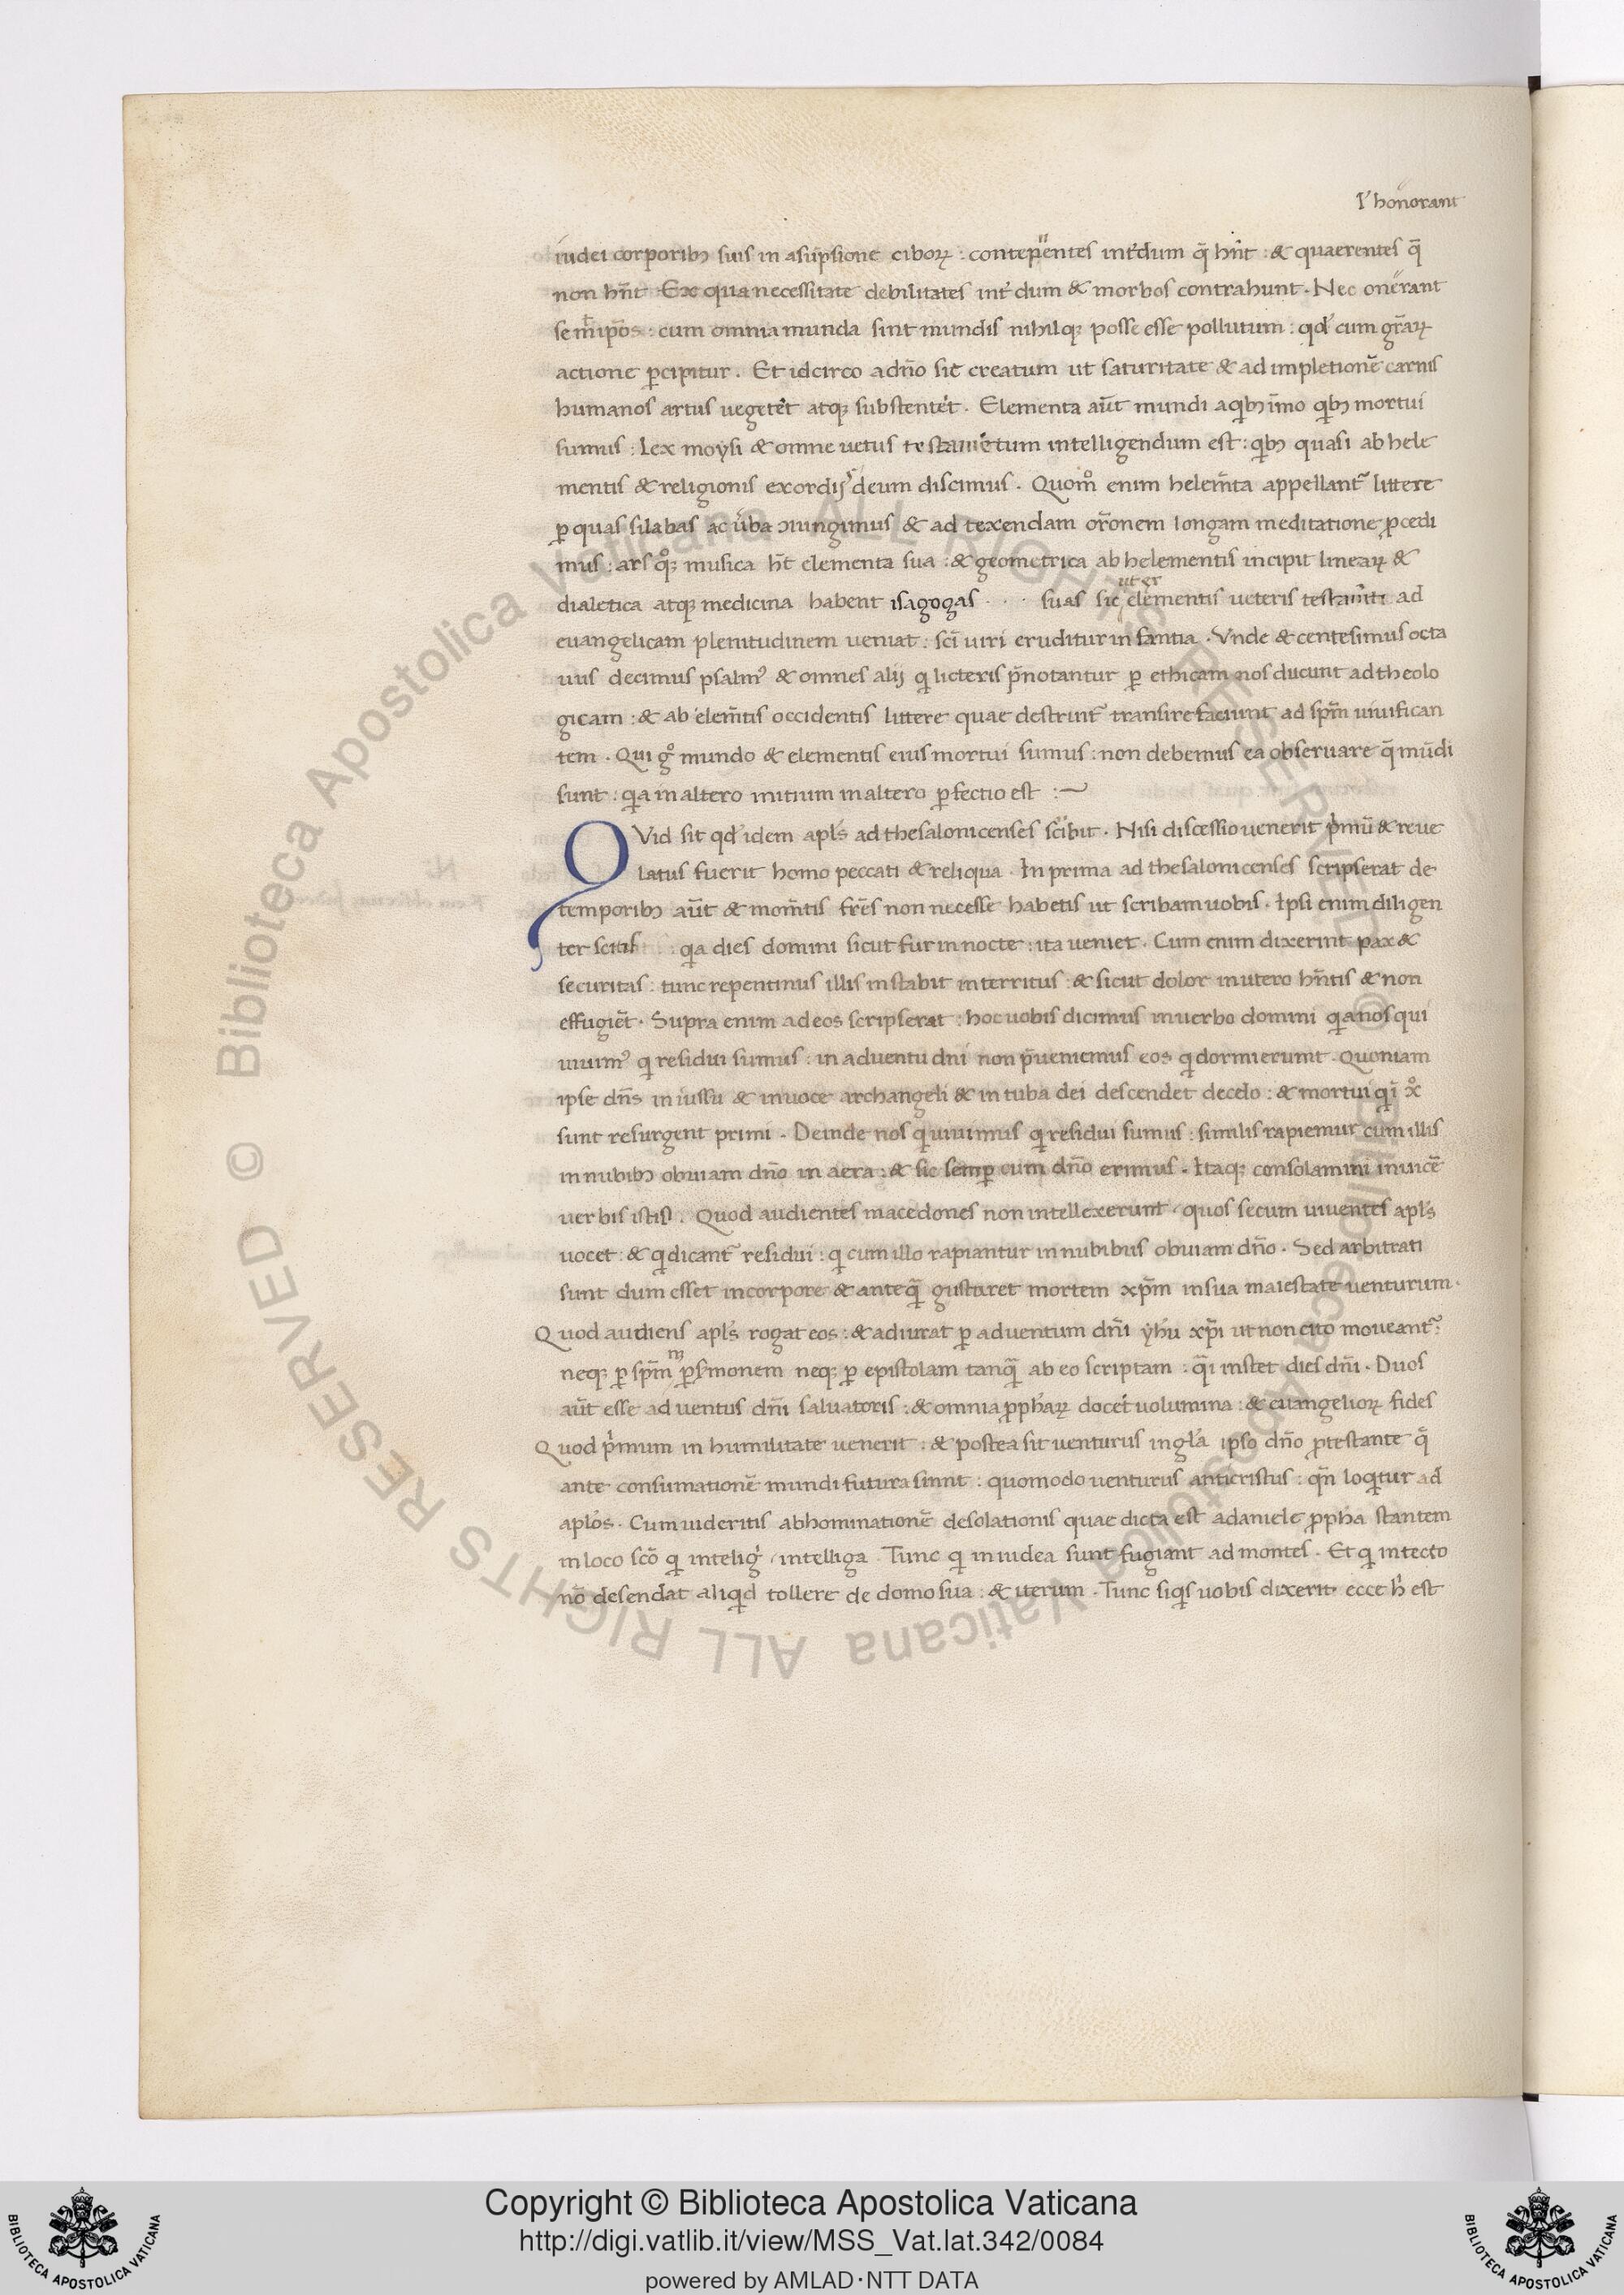 l' honorant
iudei corporibꝫ suis in asūpsione ciboꝝ : contepnentes int'dum q̄ hn̄t : & quaerentes q̄
non hn̄t Ex qua necessitate debilitates int' dum & morbos contrahunt . Nec onerant
semīpōs : cum omnia munda sint mundis nihilqꝫ posse esse pollutum : qd' cum gr̄aꝝ
actione ꝑcipitur . Et idcirco a dn̄o sit creatum ut saturitate & ad impletionē carnis
humanos artus uegetet atqꝫ substentet . Elementa aūt mundi a qibꝫ īmo qibꝫ mortui
sumus : Lex moysi & omne uetus testamētum intelligendum est : qibꝫ quasi ab hele
mentis & religionis exordijs deum discimus . Quom̊ enim helem̄ta appellant᷑ littere
ꝑ quas silabas ac ūba ↄiungimus & ad texendam or̄onem longam meditatione ꝓcedi
mus : ars qͦqꝫ musica ht̄ elementa sua : & geometrica ab helementis incipit lineaꝝ &
dialetica atqꝫ medicina habent isagogas . . . suas sic elementis ueteris testam̄ti ad
euangelicam plenitudinem ueniat : sc̄i uiri eruditur infantia . Vnde & centesimus octa
uus decimus psalmꝰ & omnes alij qi licteris p̄notantur ꝑ ethicam nos ducunt ad theolo
gicam : & ab elem̄tis occidentis littere quae destrint᷑ transire faciunt ad sp̄m uiuifican
tem . Qui gͦ mundo & elementis eius mortui sumus : non debemus ea obseruare q̄ mūdi
sunt : qia in altero initium in altero ꝑfectio est :~
QVid sit qd' idem apl's ad thesalonicenses scibit . Nisi discessio uenerit p̍mū & reue
latus fuerit homo peccati & reliqua . In prima ad thesalonicenses scripserat de
temporibꝫ aūt & mom̄tis fr̄es non necesse habetis ut scribam uobis . Ipsi enim diligen
ter scitis : qia dies domini sicut fur in nocte : ita ueniet . Cum enim dixerint pax &
securitas : tunc repentinus illis instabit interritus : & sicut dolor in utero hn̄tis & non
effugiēt . Supra enim ad eos scripserat : hoc uobis dicimus in uerbo domini qia nos qui
uiuimꝰ qi residui sumus : in aduentu dni non p̄ueniemus eos qi dormierunt . Quoniam
ipse dn̄s in iussu & in uoce archangeli & in tuba dei descendet de celo : & mortui qi ī xͦ
sunt resurgent primi . Deinde nos qi uiuimus qi residui sumus : similis rapiemur cum illis
in nubibꝫ obuiam dn̄o in aera : & sic semꝑ cum dn̄o erimus . Itaqꝫ consolamini inuicē
uerbis istis . Quod audientes macedones non intellexerunt / quos secum uiuentes apl's
uocet : & qi dicant᷑ residui : qi cum illo rapiantur in nubibus obuiam dn̄o . Sed arbitrati
sunt dum esset in corpore & anteq̄ gustaret mortem xp̄m in sua maiestate uenturum .
Quod audiens apl's rogat eos : & adiurat ꝑ aduentum dn̄i yhū xp̄i ut non cito moueant᷑ :
neqꝫ ꝑ sp̄m nꝫ ꝑ s'monem neqꝫ ꝑ epistolam tanq̄ ab eo scriptam : q̄i instet dies dn̄i . Duos
aūt esse aduentus dn̄i saluatoris : & omnia ꝓphaꝝ docet uolumina : & euangelioꝝ fides
Quod p̍mum in humilitate uenerit : & postea sit uenturus in gl'a ipso dn̄o ꝓtestante q̄
ante consumationē mundi futura sinnt : quomodo uenturus anticristus : qn̄ loqitur ad
aplos . Cum uideritis abhominationē desolationis quae dicta est a daniele ꝓpha stantem
in loco sc̄o qi intelig' / intelliga . Tunc qi in iudea sunt fugiant ad montes . Et qi in tecto
nō desendat aliqid tollere de domo sua : & iterum . Tunc siqis uobis dixerit ecce h' est
Copyright © Biblioteca Apostolica Vaticana
http://digi.vatlib.it/view/MSS_Vat.lat.342/0084
powered by AMLAD·NTT DATA
BIBLIOTECA APOSTOLICA VATICANA
BIBLIOTECA APOSTOLICA VATICANA
© Biblioteca Apostolica Vaticana ALL RIGHTS RESERVED © Biblioteca Apostolica Vaticana ALL RIGHTS RESERVED